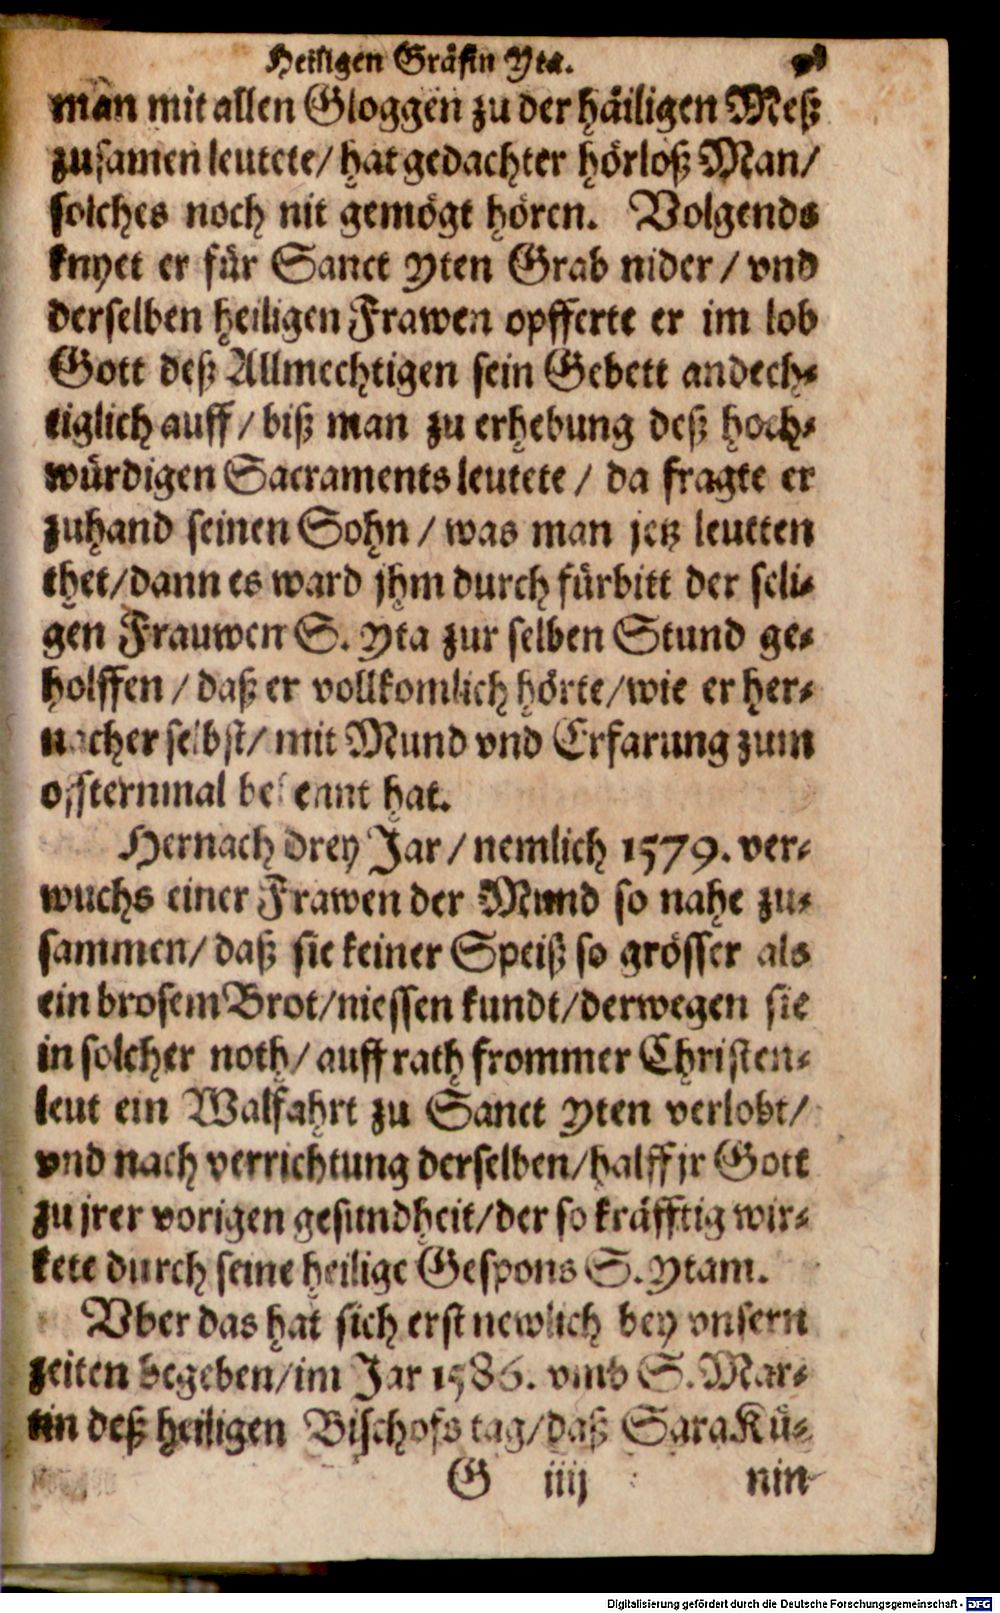 Heiligen Gräfin Yta.
man mit allen Gloggen zu der häiligen Meß
zusamen leutete/ hat gedachter hörloß Man/
solches noch nit gemögt hören. Volgends
knyet er für Sanct Yten Grab nider / vnd
derselben heiligen Frawen opfferte er im lob
Gott deß Allmechtigen sein Gebett andech-
tiglich auff / biß man zu erhebung deß hoch-
würdigen Sacraments leutete / da fragte er
zuhand seinen Sohn / was man jetz leutten
thet/dann es ward jhm durch fürbitt der seli-
gen Frauwen S. Yta zur selben Stund ge-
holffen / daß er vollkomlich hörte/wie er her-
nacher selbst/ mit Mund vnd Erfarung zum
offsternmal bekennt hat.
Hernach drey Jar / nemlich 1579. ver-
wuchs einer Frawen der Mund so nahe zu-
sammen/ daß sie keiner Speiß so grösser als
ein brosem Brot/niessen kundt/derwegen sie
in solcher noth/ auff rath frommer Christen-
leut ein Walfahrt zu Sanct Yten verlobt/
vnd nach verrichtung derselben/halff jr Gott
zu jrer vorigen gesundheit/der so kräfftig wir-
kete durch seine heilige Gespons S. Ytam.
Vber das hat sich erst newlich bey vnsern
zeiten begeben/im Jar 1586. vmb S. Mar-
tin deß heiligen Bischofs tag/daß Sara Kü-
G iiij nin
Digitalisierung gefördert durch die Deutsche Forschungsgemeinschaft - DFG